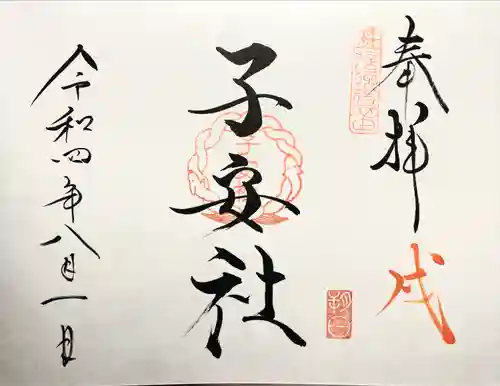 奉拝
戌
朔日
子安社
令和四年八月一日